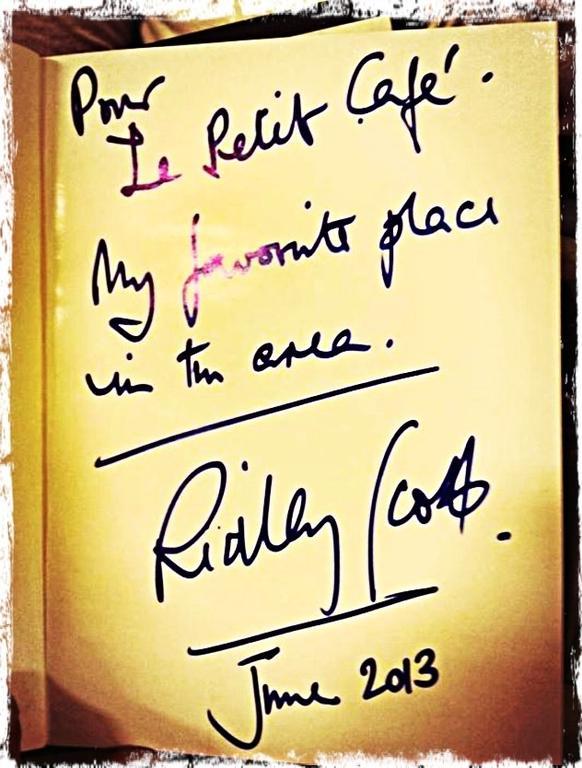 Pour
Le Petit Café.
My favorite place
in the area.
Ridley Scott.
June 2013